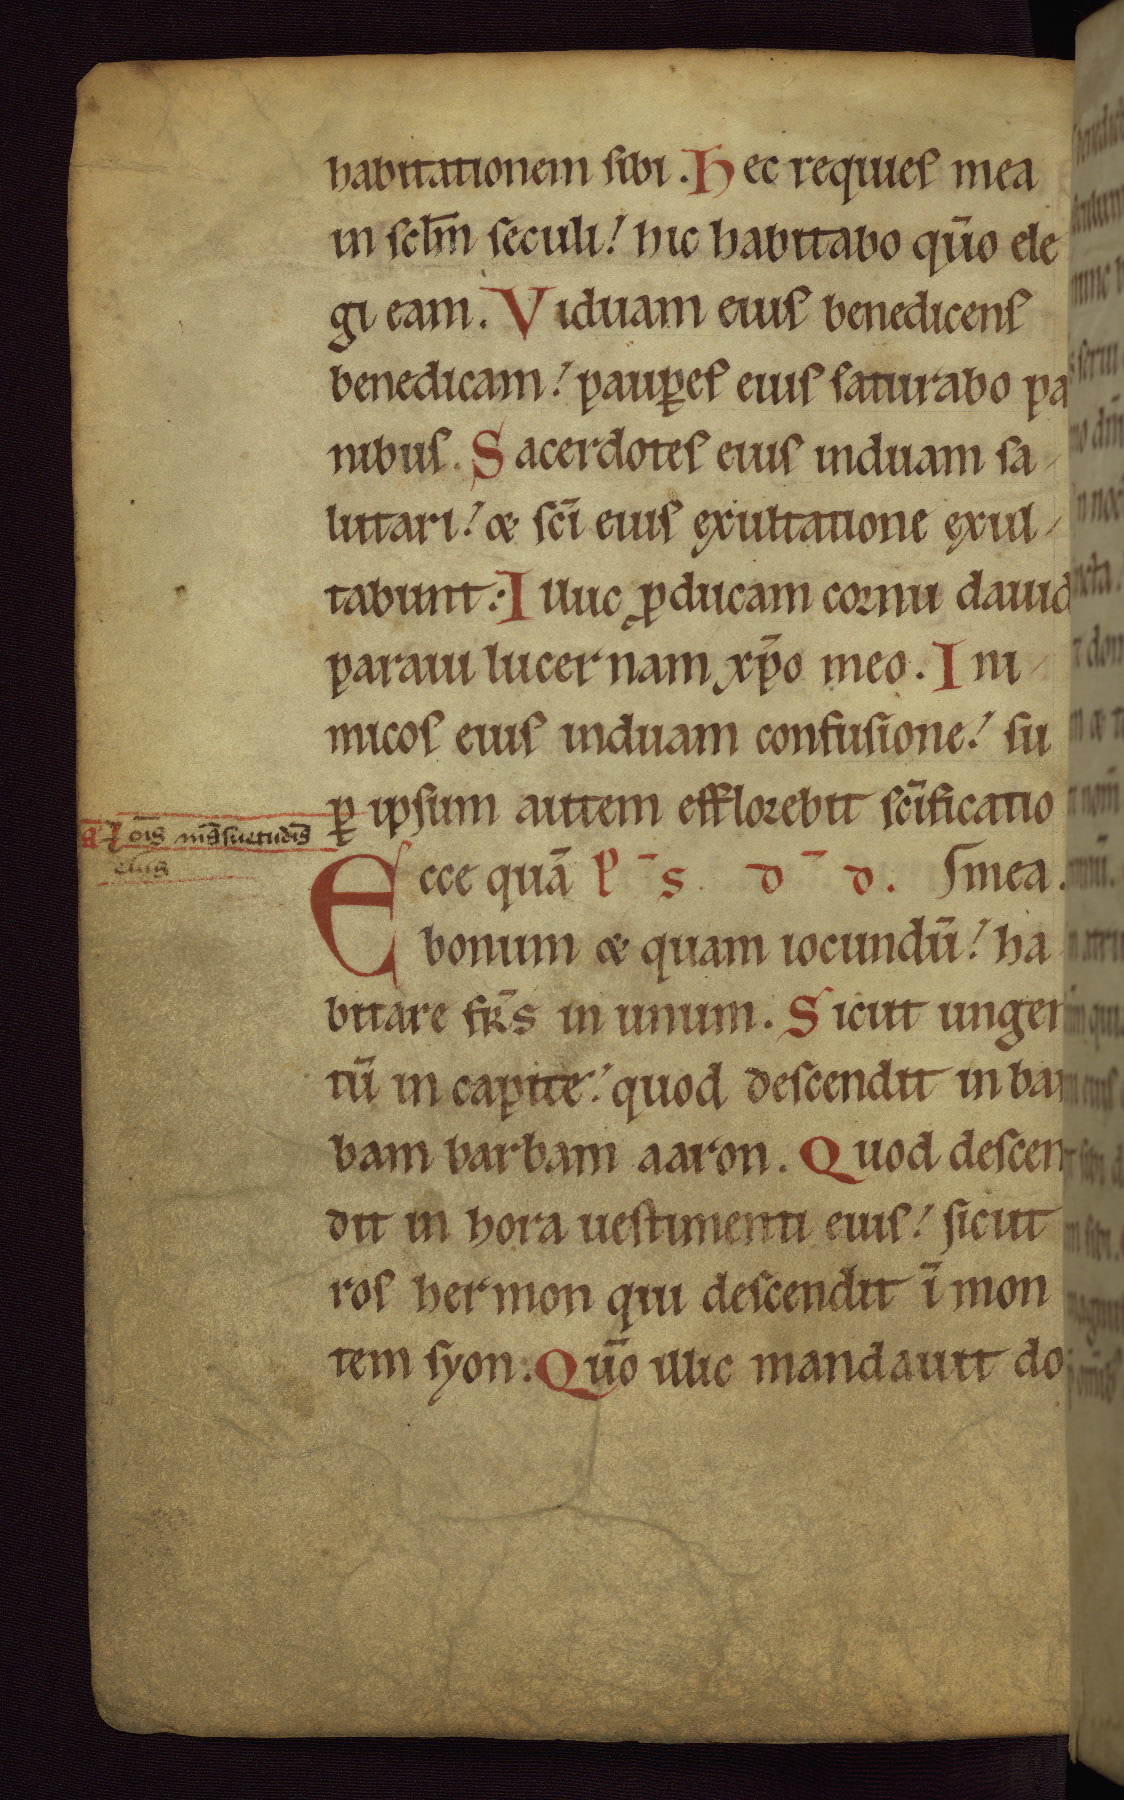 habitationem sibi. Hec requies mea
in sclm̄ seculi! hic habitabo qūo ele
gi eam. Viduam eius benedicens
benedicam! pauꝑes eius saturabo pa
nibus. Sacerdotes eius induam sa-
lutari! & sc̄i eius exultatione exul-
tabunt. Illuc ꝓducam cornu dauid
paraui lucernam xp̄o meo. Ini-
micos eius induam confusione! su
ꝑ ipsum autem efflorebit sc̄ificatio
om̄s māsuetudīs
eius
Ecce quā p̄s. d̄ d. mea.
bonum & quam iocundū! ha
bitare fr̄s in unum. Sicut ungen
tū in capite! quod descendit in bar
bam barbam aaron. Quod descen
dit in hora uestimenti eius! sicut
ros hermon qui descendit ī mon
tem syon. Qūo illic mandauit do